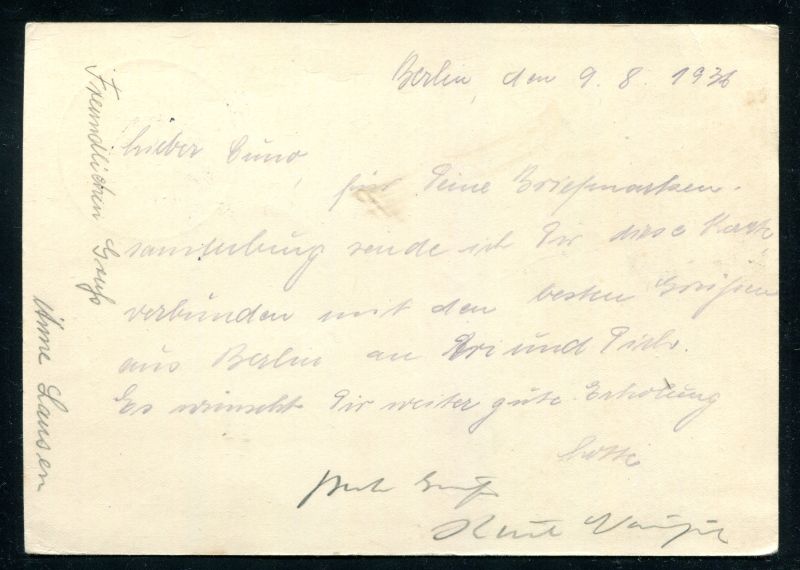 Berlin, den 9. 8. 1936
Lieber Cuno,
für Deine Briefmarken-
sammlung sende ich Dir diese Karte
verbunden mit den besten Grüßen
aus Berlin an und
Es wünscht Dir weiter gute Erholung
Lotte
Gruß
Kurt
Freundlichen Gruß
Anne Lausen